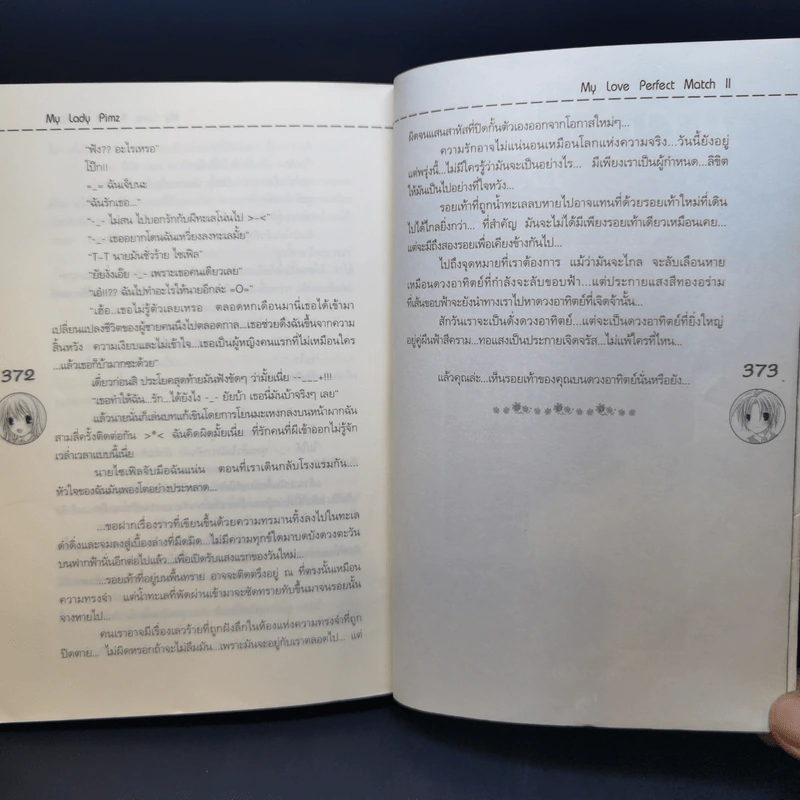 My Lady Pimz
"ฟัง?? อะไรเหรอ"
โป๊ก!!
=_= ฉันเจ็บนะ
"ฉันรักเธอ..."
"-_- ไม่สน ไปบอกรักกับผีทะเลโน่นไป >-<"
"-_- เธออยากโดนฉันเหวี่ยงลงทะเลมั้ย"
"T-T นายมันชั่วร้าย ไซเฟิล"
"ยัยงั่งเอ๊ย -_- เพราะเธอคนเดียวเลย"
"เอ๋!!?? ฉันไปทำอะไรให้นายอีกล่ะ =O="
"เฮ้อ...เธอไม่รู้ตัวเลยเหรอ ตลอดหกเดือนมานี่เธอได้เข้ามา
เปลี่ยนแปลงชีวิตของผู้ชายคนนึงไปตลอดกาล...เธอช่วยดึงฉันขึ้นจากความ
สิ้นหวัง ความเงียบและไม่เข้าใจ...เธอเป็นผู้หญิงคนแรกที่ไม่เหมือนใคร
...แล้วเธอก็บ้ามากซะด้วย"
เดี๋ยวก่อนสิ ประโยคสุดท้ายมันฟังขัดๆ ว่ามั้ยเนี่ย --___+!!!
"เธอทำให้ฉัน...รัก...ได้ยังไง -_- ยัยบ้า เธอนี่มันบ้าจริงๆ เลย"
แล้วนายนั่นก็เล่นบทแก้เขินโดยการโยนมะเหงกลงบนหน้าผากฉัน
สามสี่ครั้งติดต่อกัน >*< ฉันคิดผิดมั้ยเนี่ย ที่รักคนที่ผีเข้าออกไม่รู้จัก
เวล่ำเวลาแบบนี้เนี่ย
นายไซเฟิลจับมือฉันแน่น ตอนที่เราเดินกลับโรงแรมกัน....
หัวใจของฉันมันพองโตอย่างประหลาด...
...ขอฝากเรื่องราวที่เขียนขึ้นด้วยความทรมานทิ้งลงไปในทะเล
ดำดิ่งและจมลงสู่เบื้องล่างที่มืดมิด...ไม่มีความทุกข์ใดมาบดบังดวงตะวัน
บนฟากฟ้านั่นอีกต่อไปแล้ว...เพื่อเปิดรับแสงแรกของวันใหม่...
...รอยเท้าที่อยู่บนพื้นทราย อาจจะติดตรึงอยู่ ณ ที่ตรงนั้นเหมือน
ความทรงจำ แต่น้ำทะเลที่พัดผ่านเข้ามาจะซัดทรายทับขึ้นมาจนรอยนั้น
จางหายไป...
คนเราอาจมีเรื่องเลวร้ายที่ถูกฝังลึกในห้องแห่งความทรงจำที่ถูก
ปิดตาย... ไม่ผิดหรอกถ้าจะไม่ลืมมัน...เพราะมันจะอยู่กับเราตลอดไป... แต่
372
My Love Perfect Match II
ผิดจนแสนสาหัสที่ปิดกั้นตัวเองออกจากโอกาสใหม่ๆ...
ความรักอาจไม่แน่นอนเหมือนโลกแห่งความจริง...วันนี้ยังอยู่
แต่พรุ่งนี้...ไม่มีใครรู้ว่ามันจะเป็นอย่างไร... มีเพียงเราเป็นผู้กำหนด...ลิขิต
ให้มันเป็นไปอย่างที่ใจหวัง...
รอยเท้าที่ถูกน้ำทะเลลบหายไปอาจแทนที่ด้วยรอยเท้าใหม่ที่เดิน
ไปได้ไกลยิ่งกว่า... ที่สำคัญ มันจะไม่ได้มีเพียงรอยเท้าเดียวเหมือนเคย...
แต่จะมีถึงสองรอยเพื่อเคียงข้างกันไป...
ไปถึงจุดหมายที่เราต้องการ แม้ว่ามันจะไกล จะลับเลือนหาย
เหมือนดวงอาทิตย์ที่กำลังจะลับขอบฟ้า...แต่ประกายแสงสีทองอร่าม
ที่เส้นขอบฟ้าจะยังนำทางเราไปหาดวงอาทิตย์ที่เจิดจ้านั้น...
สักวันเราจะเป็นดั่งดวงอาทิตย์...แต่จะเป็นดวงอาทิตย์ที่ยิ่งใหญ่
อยู่คู่ผืนฟ้าสีคราม...ทอแสงเป็นประกายเจิดจรัส...ไม่แพ้ใครที่ไหน...
แล้วคุณล่ะ...เห็นรอยเท้าของคุณบนดวงอาทิตย์นั่นหรือยัง...
373